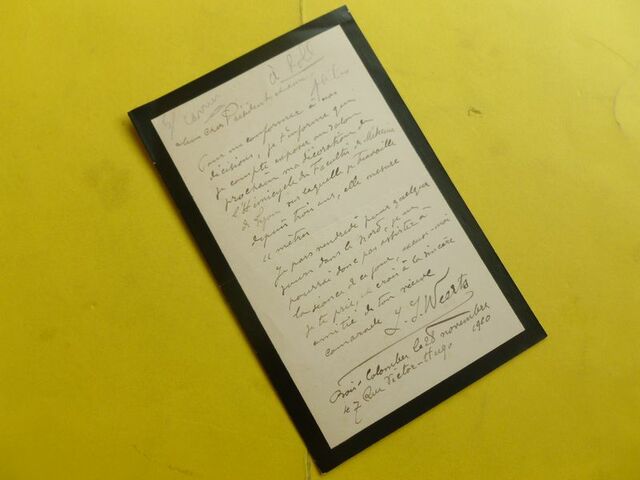 à Roll
Mon cher Président et ami
Pour me conformer à vos
décisions, je t'informe que
je compte exposer au salon
prochain ma décoration de
l'Hémicycle de Faculté de Médecine
de Lyon sur laquelle je travaille
depuis trois ans, elle mesure
11 mètres
Je pars vendredi pour quelques
jours dans le Nord, je ne
pourrai donc pas assister à
la séance de ce jour, excuse-moi
je te prie, et crois à la sincère
amitié de ton vieux
camarade J. J. Weerts
Bois-Colombes le 28 novembre
1910
47 Rue Victor-Hugo